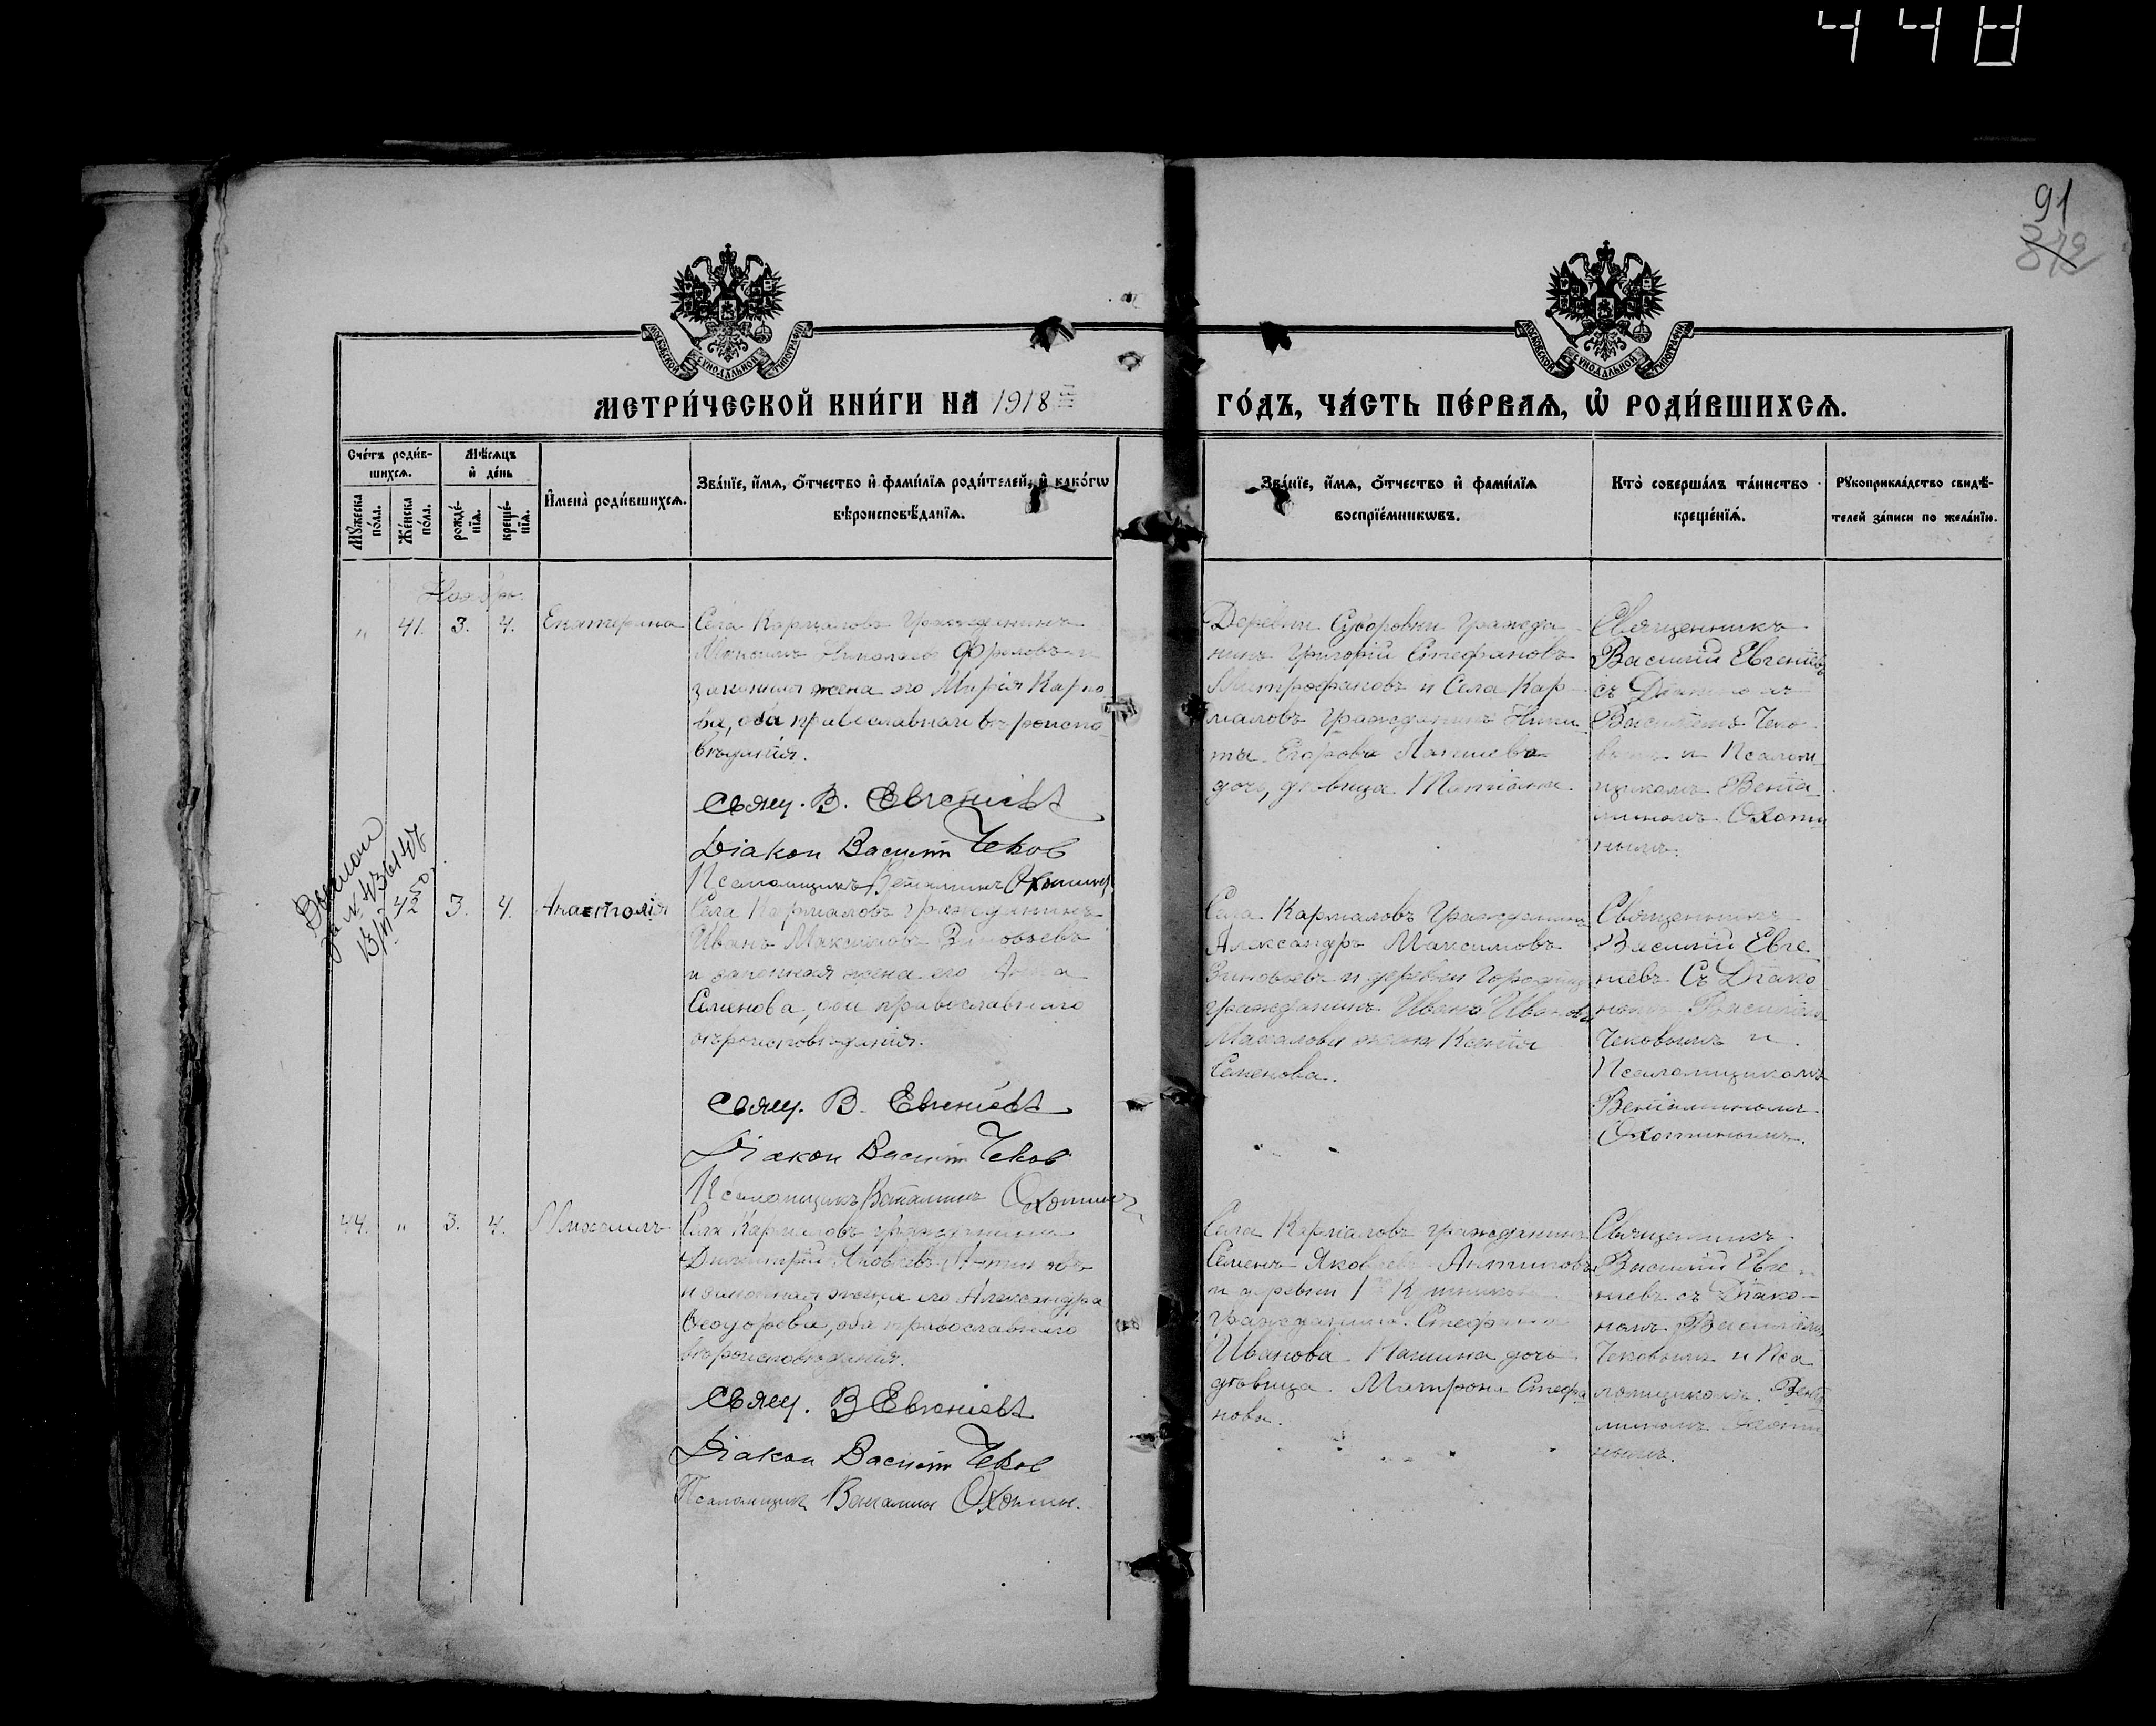 448
91
372
МЕТРИ́ЧЕСКОЙ КНИ́ГИ НА 1918
ГО́ДЪ, ЧА́СТЬ ПЕ́РВАЯ, Ѡ҆ РОДИ́ВШИХСЯ.
Сче́тъ роди́в-
шихся.
Мꙋжеска
по́ла.
Же́нска
по́ла.
Мѣ́сяцъ
и҆ де́нь
рожде́-
нїя.
креще́-
нїя.
И҆мена̀ роди́вшихся.
Зва́нїе, и҆́мя, ѻ҆́тчество и҆ фами́лїя роди́телей, и҆ како́гѡ
вѣроисповѣ́данїя.
Зва́нїе, и҆́мя, ѻ҆́тчество и҆ фами́лїя
воспрїе́мникѡвъ.
Кто̀ соверша́лъ та́инство
креще́нїя.
Рꙋкоприкла́дство свидѣ́-
телей за́писи по жела́нїю.
Ноябрь.
" 41. 3. 4. Екатерина
Села Кармаловъ гражданинъ
Максимъ Николаевъ Фроловъ и
законная жена его Марія Карпо
ва, оба православнаго вѣроиспо
вѣданія.
Свящ. В. Евгеніевъ
Діакон Василій Чеков
Псаломщикъ Веніаминъ Охотинъ
Деревни Суворовки гражда
нинъ Григорій Стефановъ
Митрофановъ и Села Кар-
маловъ гражданина Ники
ты Егорова
дочь, дѣвица Татіана.
Священникъ
Василій Евгеніевъ
съ Діакономъ
Василіемъ Чеко
вымъ и Псалом
щикомъ Веніа
миномъ Охоти
нымъ.
42 3. 4. Анастолія
Села Кармаловъ гражданинъ
Иванъ Максимовъ Зиновьевъ
и законная жена его Анна
Семенова, оба православнаго
вѣроисповѣданія.
Свящ. В. Евгеніевъ
Діакон Василій Чеков
Псаломщикъ Веніаминъ Охотинъ
Села Кармаловъ гражданинъ
Александръ Максимовъ
Зиновьевъ и деревни
гражданина Ивана Иванова
жена Ксенія
Семенова.
Священникъ
Василій Евге
ніевъ съ Діако
номъ Василіемъ
Чековымъ и
Псаломщикомъ
Веніаминомъ
Охотинымъ.
44. " 3. 4. Михаилъ
Села Кармаловъ гражданинъ
Димитрій Яковлевъ Антиповъ
и законная жена его Александра
Ѳеодорова, оба православнаго
вѣроисповѣданія.
Свящ. В Евгеніевъ
Діакон Василій Чеков
Псаломщик Вениамин Охотин.
Села Кармаловъ гражданинъ
Семенъ Яковлевъ Антиповъ
и деревни
гражданина Стефана
Иванова дочь
дѣвица Матрона Стефа
нова.
Священникъ
Василій Евге
ніевъ съ Діако-
номъ Василіемъ
Чековымъ и Пса
ломщикомъ Веніа
миномъ Охоти
нымъ.